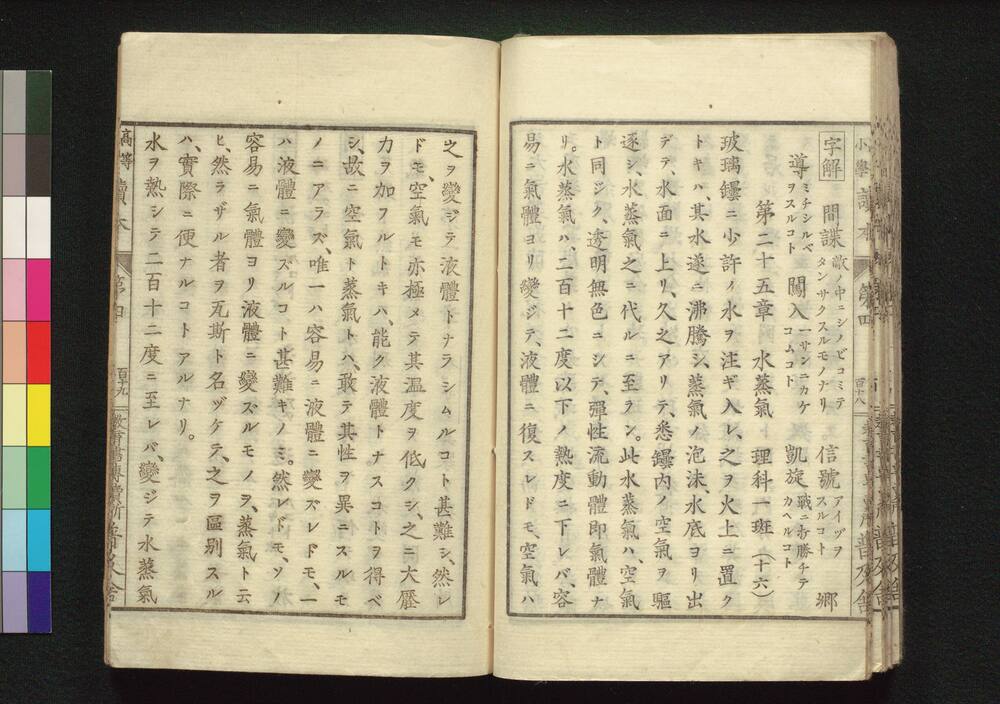 字解 間諜 敵ノ中ニシノビコミテタンサクスルモノナリ 信號 アイヅヲスルコト 郷
導 ミチシルベヲスルコト 闖入 一サンニカケコムコト 凱旋 戰ニ打勝チテカヘルコト
第二十五章 水蒸氣 理科一斑(十六)
玻璃鑵ニ少許ノ水ヲ注ギ入レ、之ヲ火上ニ置ク
トキハ、其水遂ニ沸騰シ、蒸氣ノ泡沫、水底ヨリ出
デテ、水面ニ上リ、久之アリテ、悉鑵內ノ空氣ヲ驅
逐シ、水蒸氣之ニ代ルニ至ラン。此水蒸氣ハ、空氣
ト同ジク、透明無色ニシテ、彈性流動體即氣體ナ
リ。水蒸氣ハ、二百十二度以下ノ熱度ニ下レバ、容
易ニ氣體ヨリ變ジテ、液體ニ復スレドモ、空氣ハ
之ヲ變ジテ液體トナラシムルコト甚難シ、然レ
ドモ、空氣モ亦極メテ其溫度ヲ低クシ、之ニ大壓
力ヲ加フルトキハ、能ク液體トナスコトヲ得ベ
シ、故ニ空氣ト蒸氣トハ、敢テ其性ヲ異ニスルモ
ノニアラズ、唯一ハ容易ニ液體ニ變ズレドモ、一
ハ液體ニ變ズルコト甚難キノミ。然レドモ、ソノ
容易ニ氣體ヨリ液體ニ變ズルモノヲ、蒸氣ト云
ヒ、然ラザル者ヲ瓦斯ト名ヅケテ、之ヲ區別スル
ハ、實際ニ便ナルコトアルナリ。
水ヲ熱シテ二百十二度ニ至レバ、變ジテ水蒸氣
高等讀本 第四 百十九 教育書專賣所普及舍